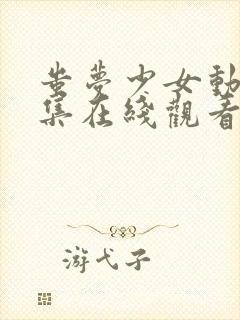 蚩夢少女動
集在綫觀看
游弋子